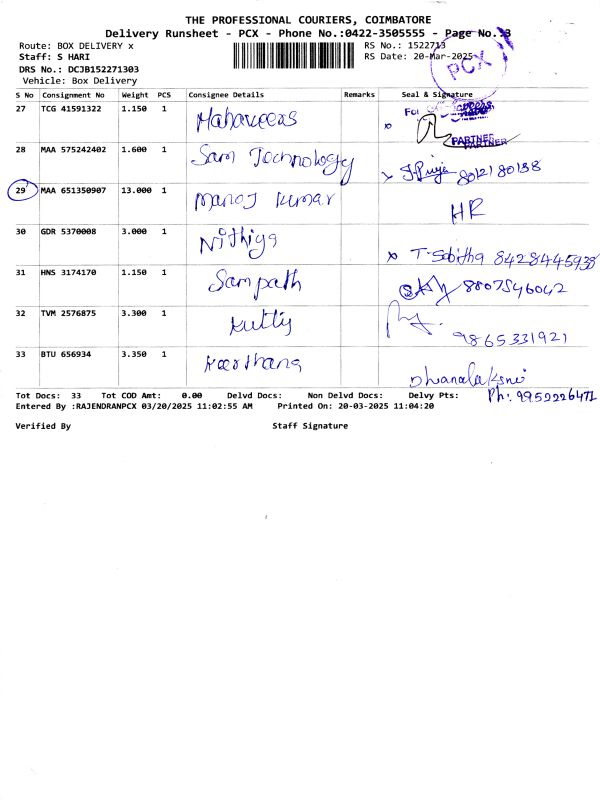 THE PROFESSIONAL COURIERS, COIMBATORE
Delivery Runsheet - PCX - Phone No.:0422-3505555 - Page No.:3
Route: BOX DELIVERY x
RS No.: 1522713
Staff: S HARI
RS Date: 20-Mar-2025
DRS No.: DCJB152271303
Vehicle: Box Delivery
PCX
S No Consignment No Weight PCS Consignee Details Remarks Seal & Signature
27 TCG 41591322 1.150 1 Mahaveers For
PARTNER
28 MAA 575242402 1.600 1 Sam Technology
29 MAA 651350907 13.000 1 Manoj Kumar HR
30 GDR 5370008 3.000 1 Nithiya T. Sabitha
31 HNS 3174170 1.150 1 Sampath 8807546042
32 TVM 2576875 3.300 1 Kutty 9865331921
33 BTU 656934 3.350 1 Keerthana
Ph: 9952226471
Tot Docs: 33 Tot COD Amt: 0.00 Delvd Docs: Non Delvd Docs: Delvy Pts:
Entered By :RAJENDRANPCX 03/20/2025 11:02:55 AM Printed On: 20-03-2025 11:04:20
Verified By Staff Signature